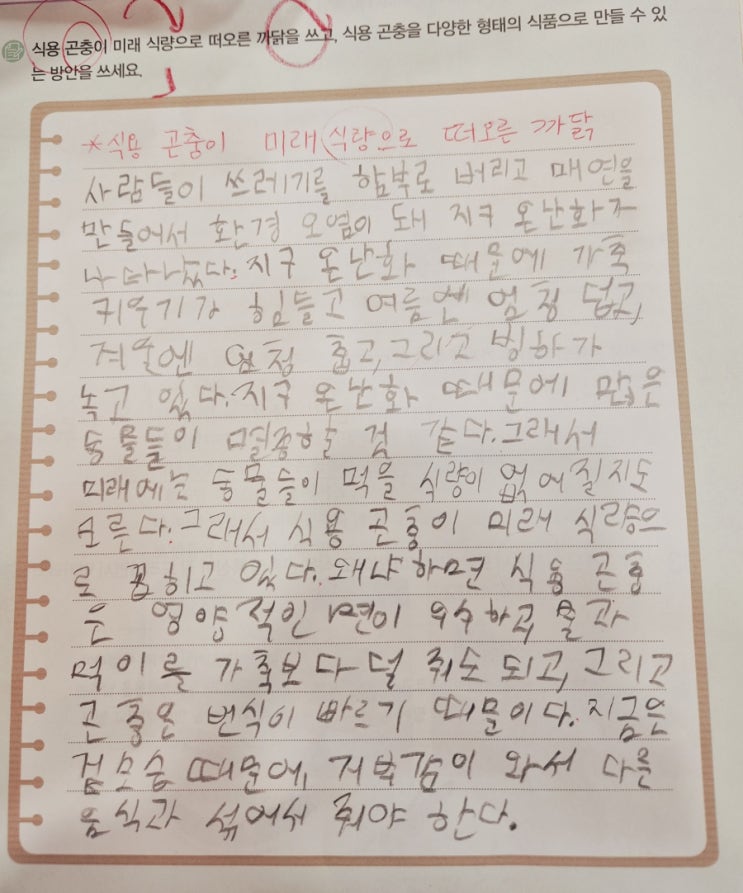 식용 곤충이 미래 식량으로 떠오른 까닭을 쓰고, 식용 곤충을 다양한 형태의 식품으로 만들 수 있
는 방안을 쓰세요.
*식용 곤충이 미래 식량으로 떠오른 까닭
사람들이 쓰레기를 함부로 버리고 매연을
만들어서 환경 오염이 돼 지구 온난화가
나타났다. 지구 온난화 때문에 가축
키우기가 힘들고 여름엔 엄청 덥고,
겨울엔 엄청 춥고, 그리고 빙하가
녹고 있다. 지구 온난화 때문에 많은
동물들이 멸종할 것 같다. 그래서
미래에는 동물들이 먹을 식량이 없어질지도
모른다. 그래서 식용 곤충이 미래 식량으
로 꼽히고 있다. 왜냐하면 식용 곤충
은 영양적인 면이 우수하고, 물과
먹이를 가축보다 덜 줘도 되고, 그리고
곤충은 번식이 빠르기 때문이다. 지금은
겉모습 때문에, 거부감이 와서 다른
음식과 섞어서 줘야 한다.